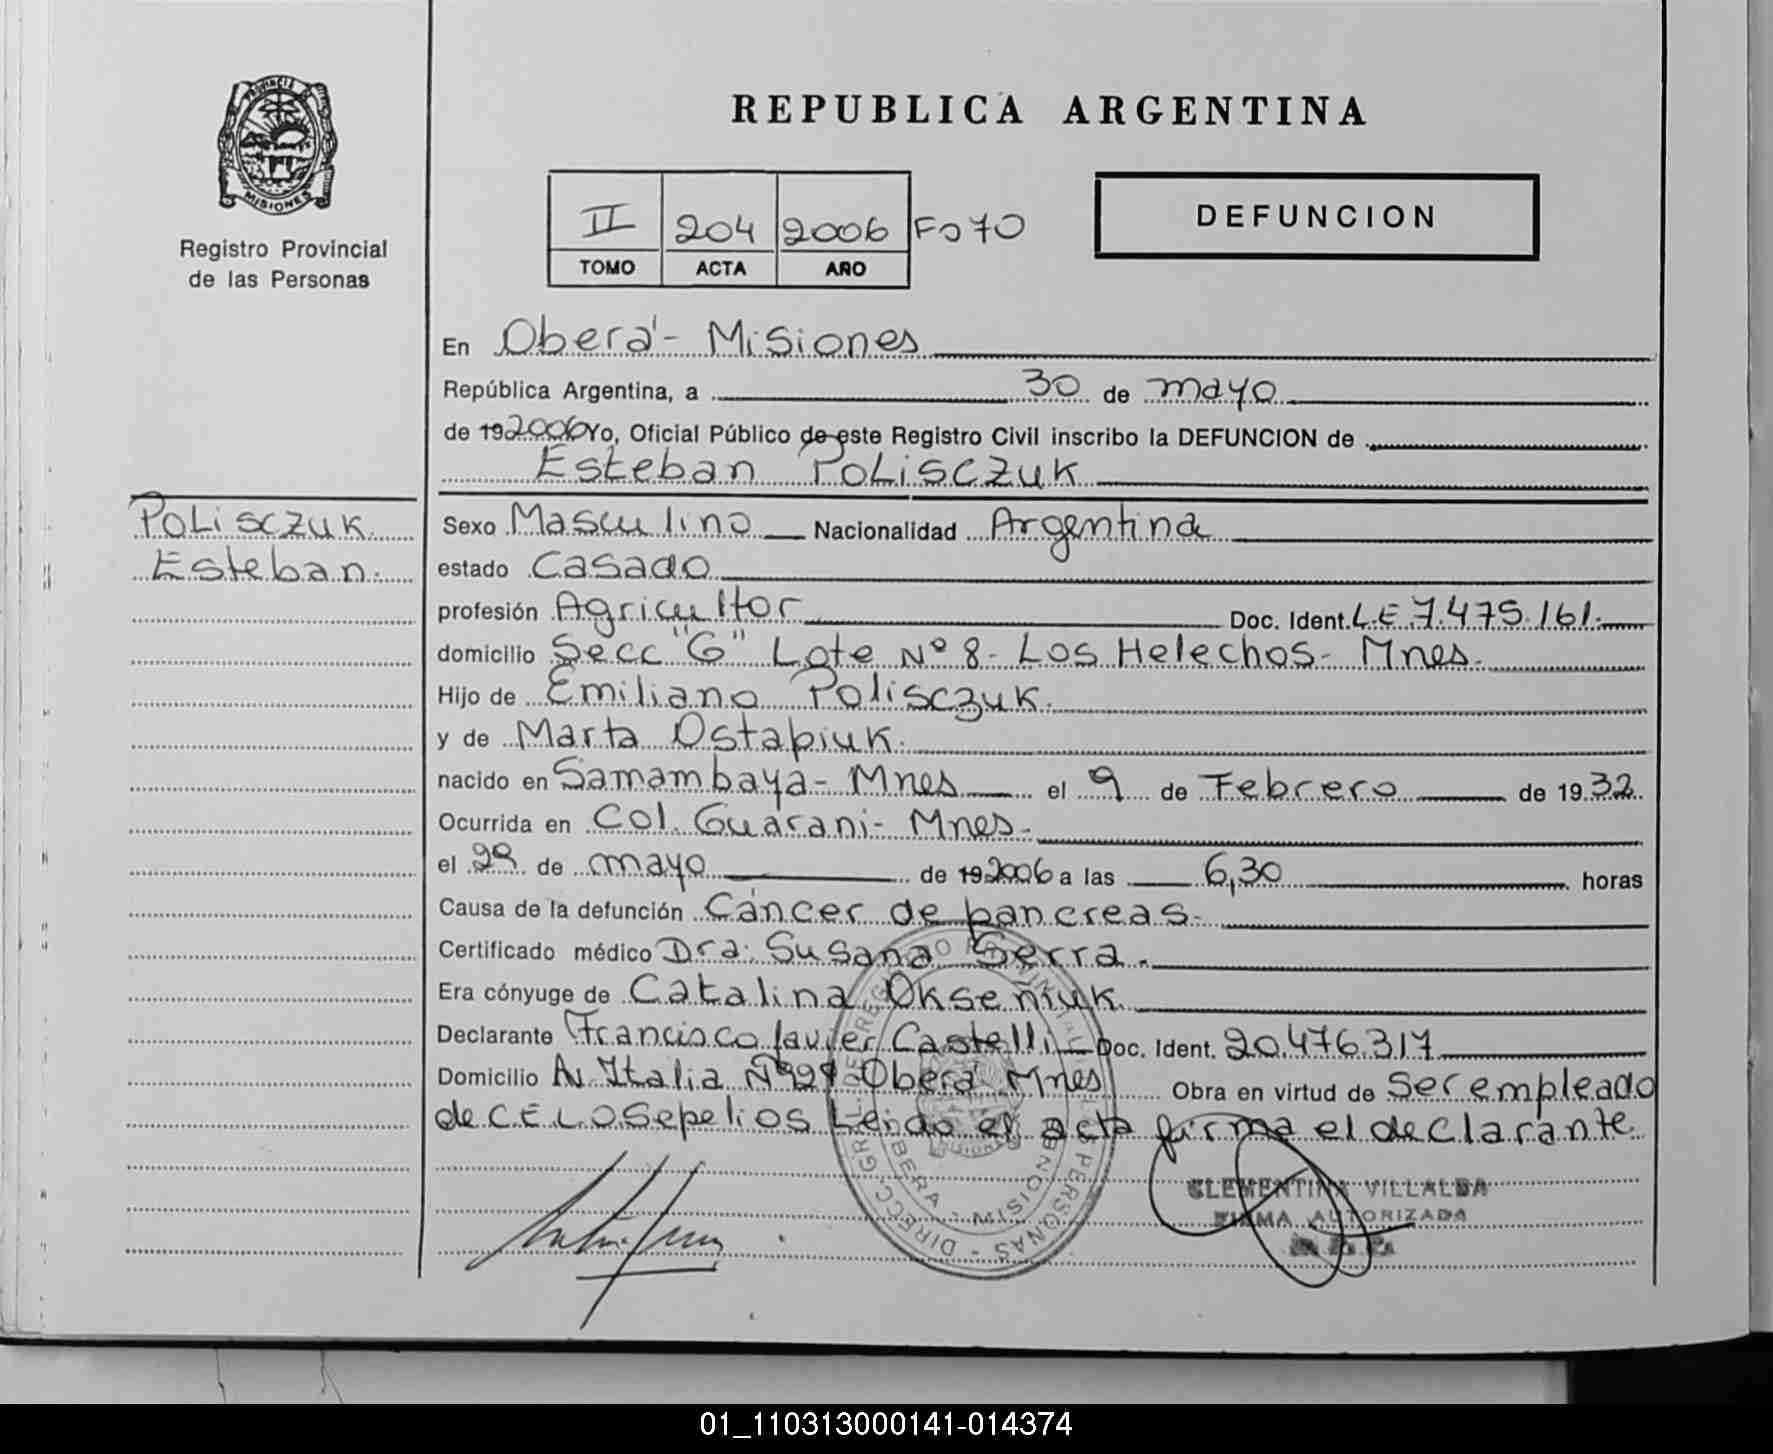 PROVINCIA DE
MISIONES
Registro Provincial
de las Personas
REPUBLICA ARGENTINA
II 204 2006 Fo 70
TOMO ACTA AÑO
DEFUNCION
En Oberá - Misiones
República Argentina, a 30 de mayo
de 19 2006 Yo, Oficial Público de este Registro Civil inscribo la DEFUNCION de
Esteban Polisczuk
Polisczuk
Esteban.
Sexo Masculino Nacionalidad Argentina
estado Casado
profesión Agricultor Doc. Ident. L.E 7.475.161.
domicilio Secc "G" Lote Nº 8 - Los Helechos - Mnes.
Hijo de Emiliano Polisczuk.
y de Marta Ostapiuk.
nacido en Samambaya - Mnes el 9 de Febrero de 1932
Ocurrida en Col. Guarani - Mnes -
el 29 de mayo de 19 2006 a las 6,30 horas
Causa de la defunción Cáncer de pancreas.
Certificado médico Dra: Susana Serra.
Era cónyuge de Catalina Okseniuk.
Declarante Francisco Javier Castelli Doc. Ident. 20.476.317
Domicilio Av. Italia Oberá Mnes Obra en virtud de Ser empleado
de C.E.L.O Sepelios Leida el acta firma el declarante
CLEMENTINA VILLALBA
FIRMA AUTORIZADA
01_110313000141-014374